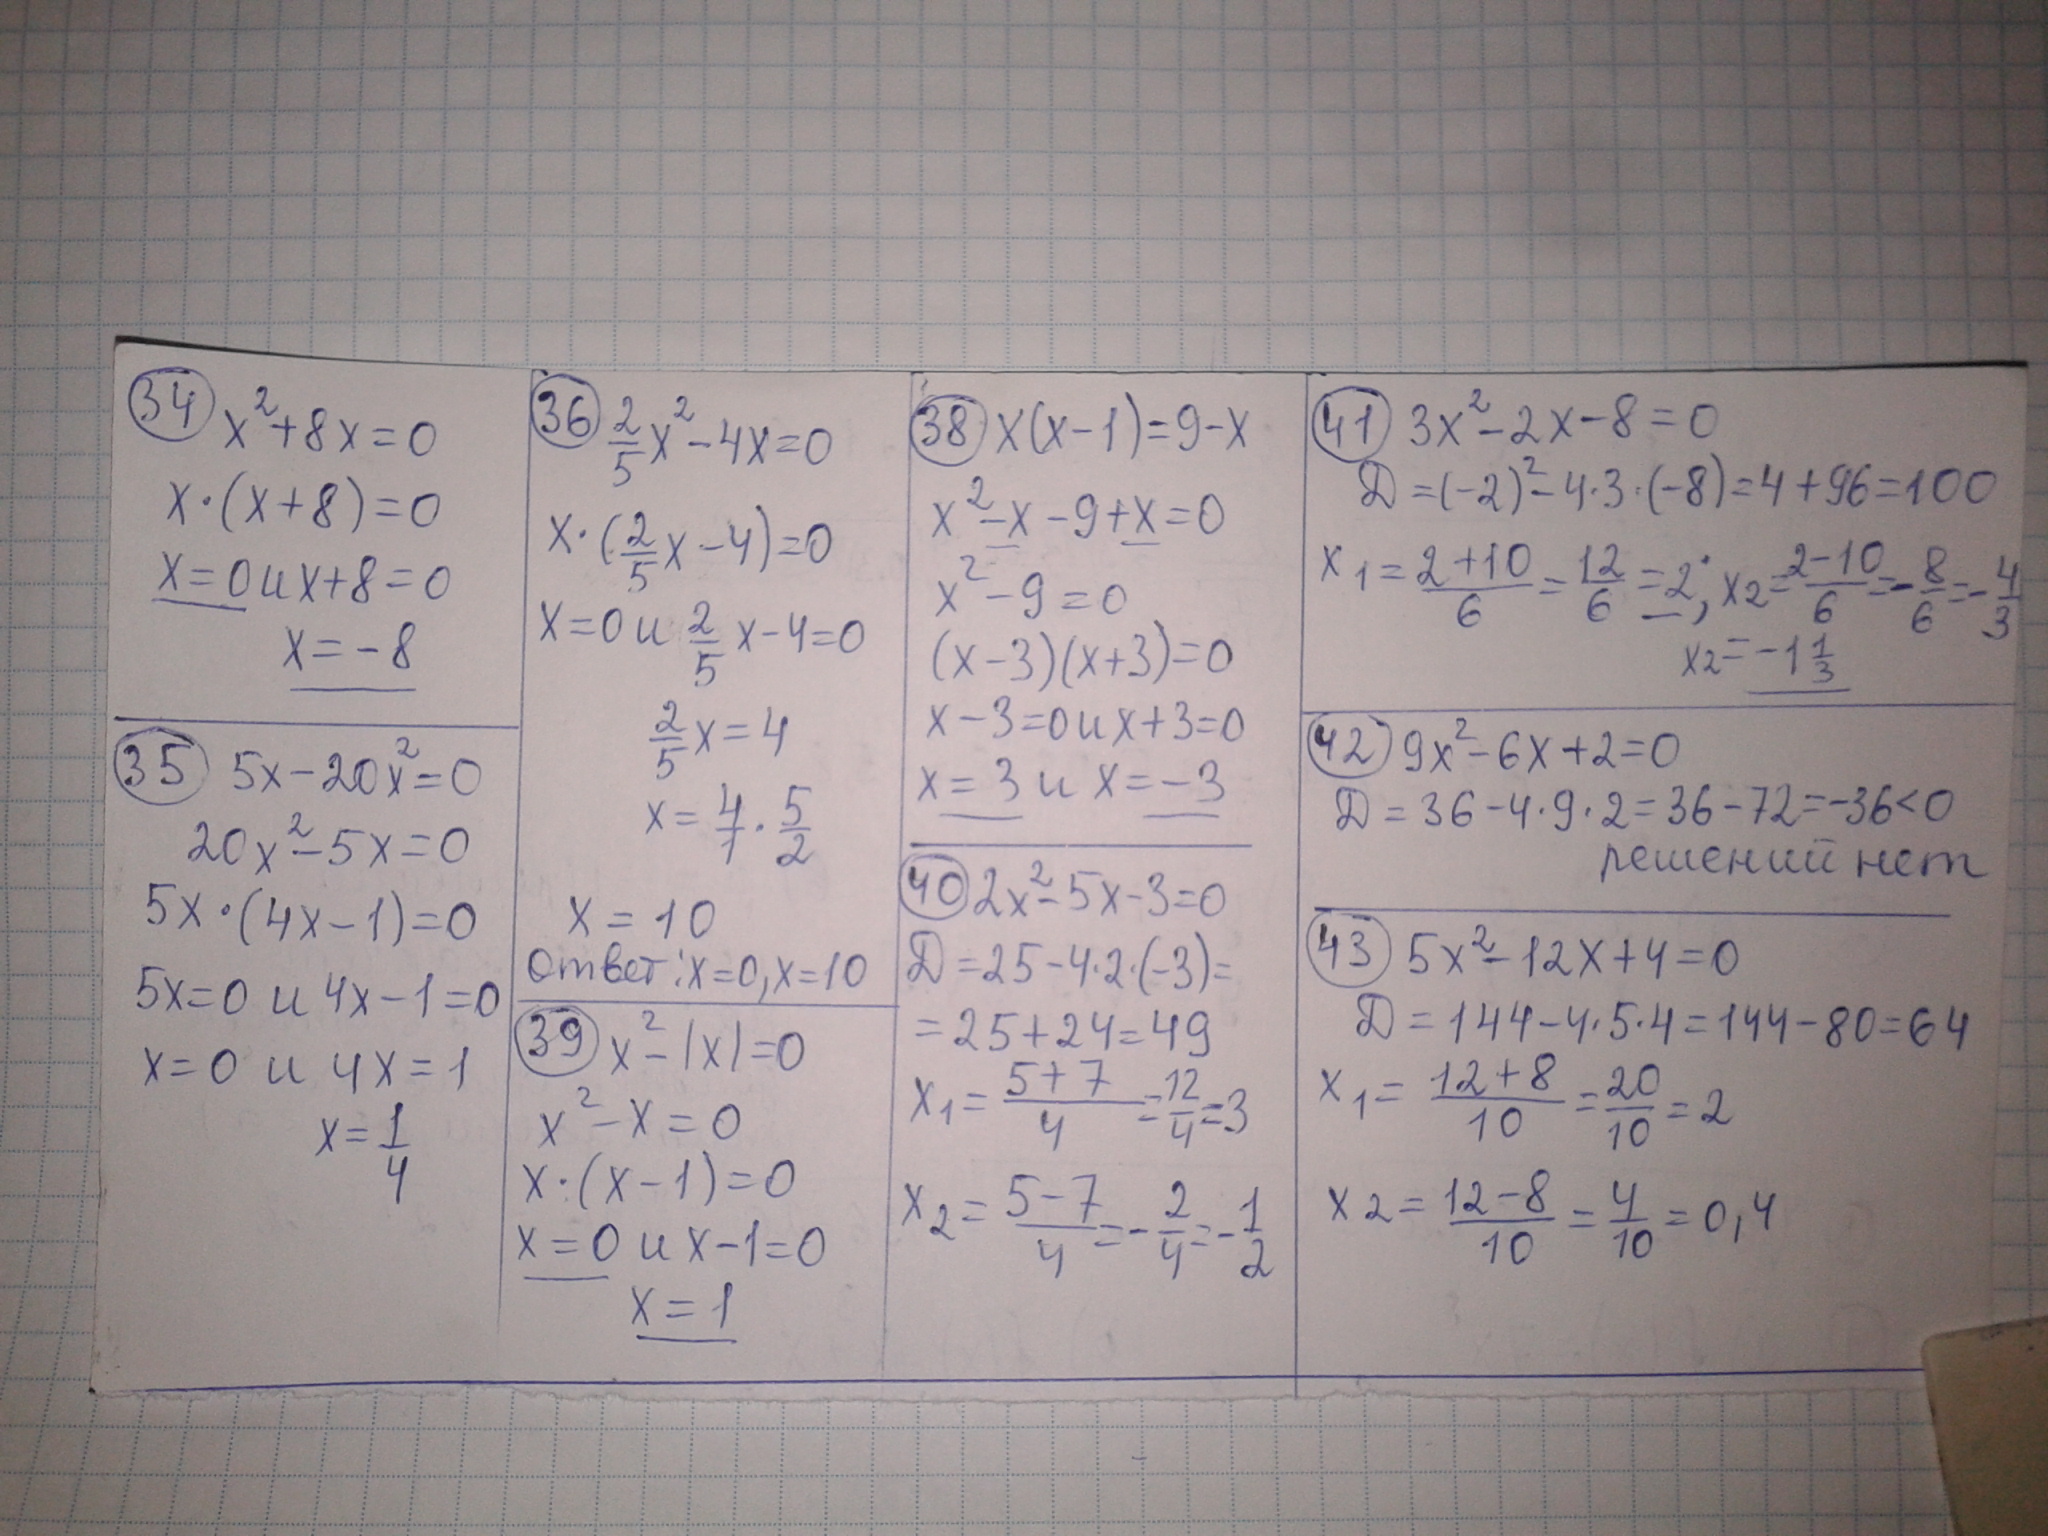 34 x²+8x=0
x·(x+8)=0
x=0 и x+8=0
x=-8
35 5x-20x²=0
20x²-5x=0
5x·(4x-1)=0
5x=0 и 4x-1=0
x=0 и 4x=1
x=1/4
36 2/5x²-4x=0
x·(2/5x-4)=0
x=0 и 2/5x-4=0
2/5x=4
x=4/1·5/2
x=10
Ответ: x=0, x=10
39 x²-|x|=0
x²-x=0
x·(x-1)=0
x=0 и x-1=0
x=1
38 x(x-1)=9-x
x²-x-9+x=0
x²-9=0
(x-3)(x+3)=0
x-3=0 и x+3=0
x=3 и x=-3
40 2x²-5x-3=0
Д=25-4·2·(-3)=
=25+24=49
x₁=5+7/4=12/4=3
x₂=5-7/4=-2/4=-1/2
41 3x²-2x-8=0
Д=(-2)²-4·3·(-8)=4+96=100
x₁=2+10/6=12/6=2; x₂=2-10/6=-8/6=-4/3
x₂=-1 1/3
42 9x²-6x+2=0
Д=36-4·9·2=36-72=-36<0
решений нет
43 5x²-12x+4=0
Д=144-4·5·4=144-80=64
x₁=12+8/10=20/10=2
x₂=12-8/10=4/10=0,4